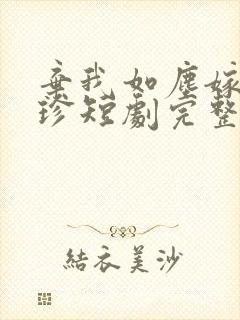 棄我如塵嫁
珍短劇完整
結衣美沙